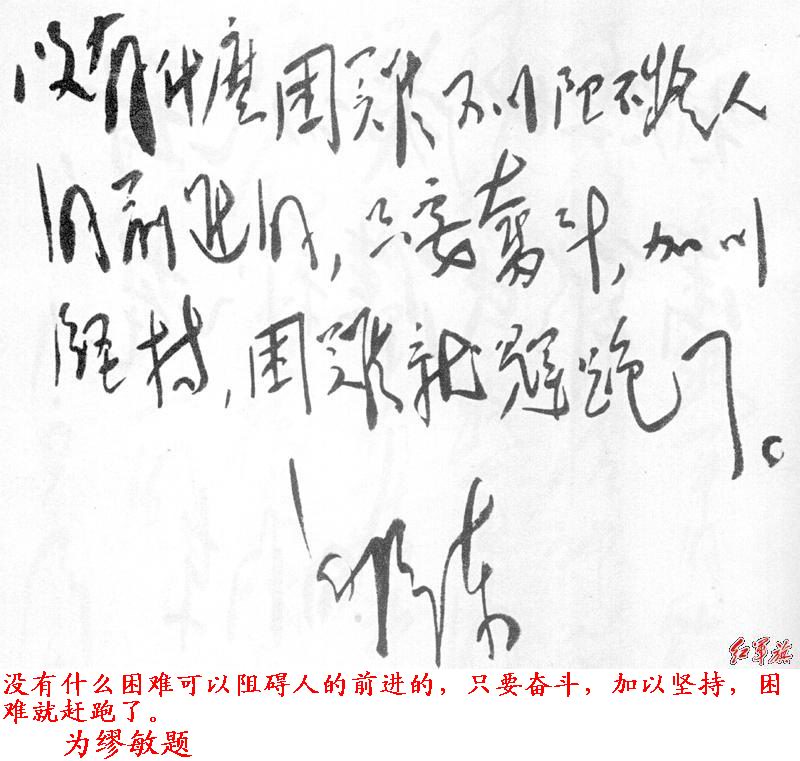 没有什麼困難可以阻碍人
的前進的，只要奮斗，加以
堅持，困難就趕跑了。
毛泽东
红军旗
没有什么困难可以阻碍人的前进的，只要奋斗，加以坚持，困
难就赶跑了。
为缪敏题